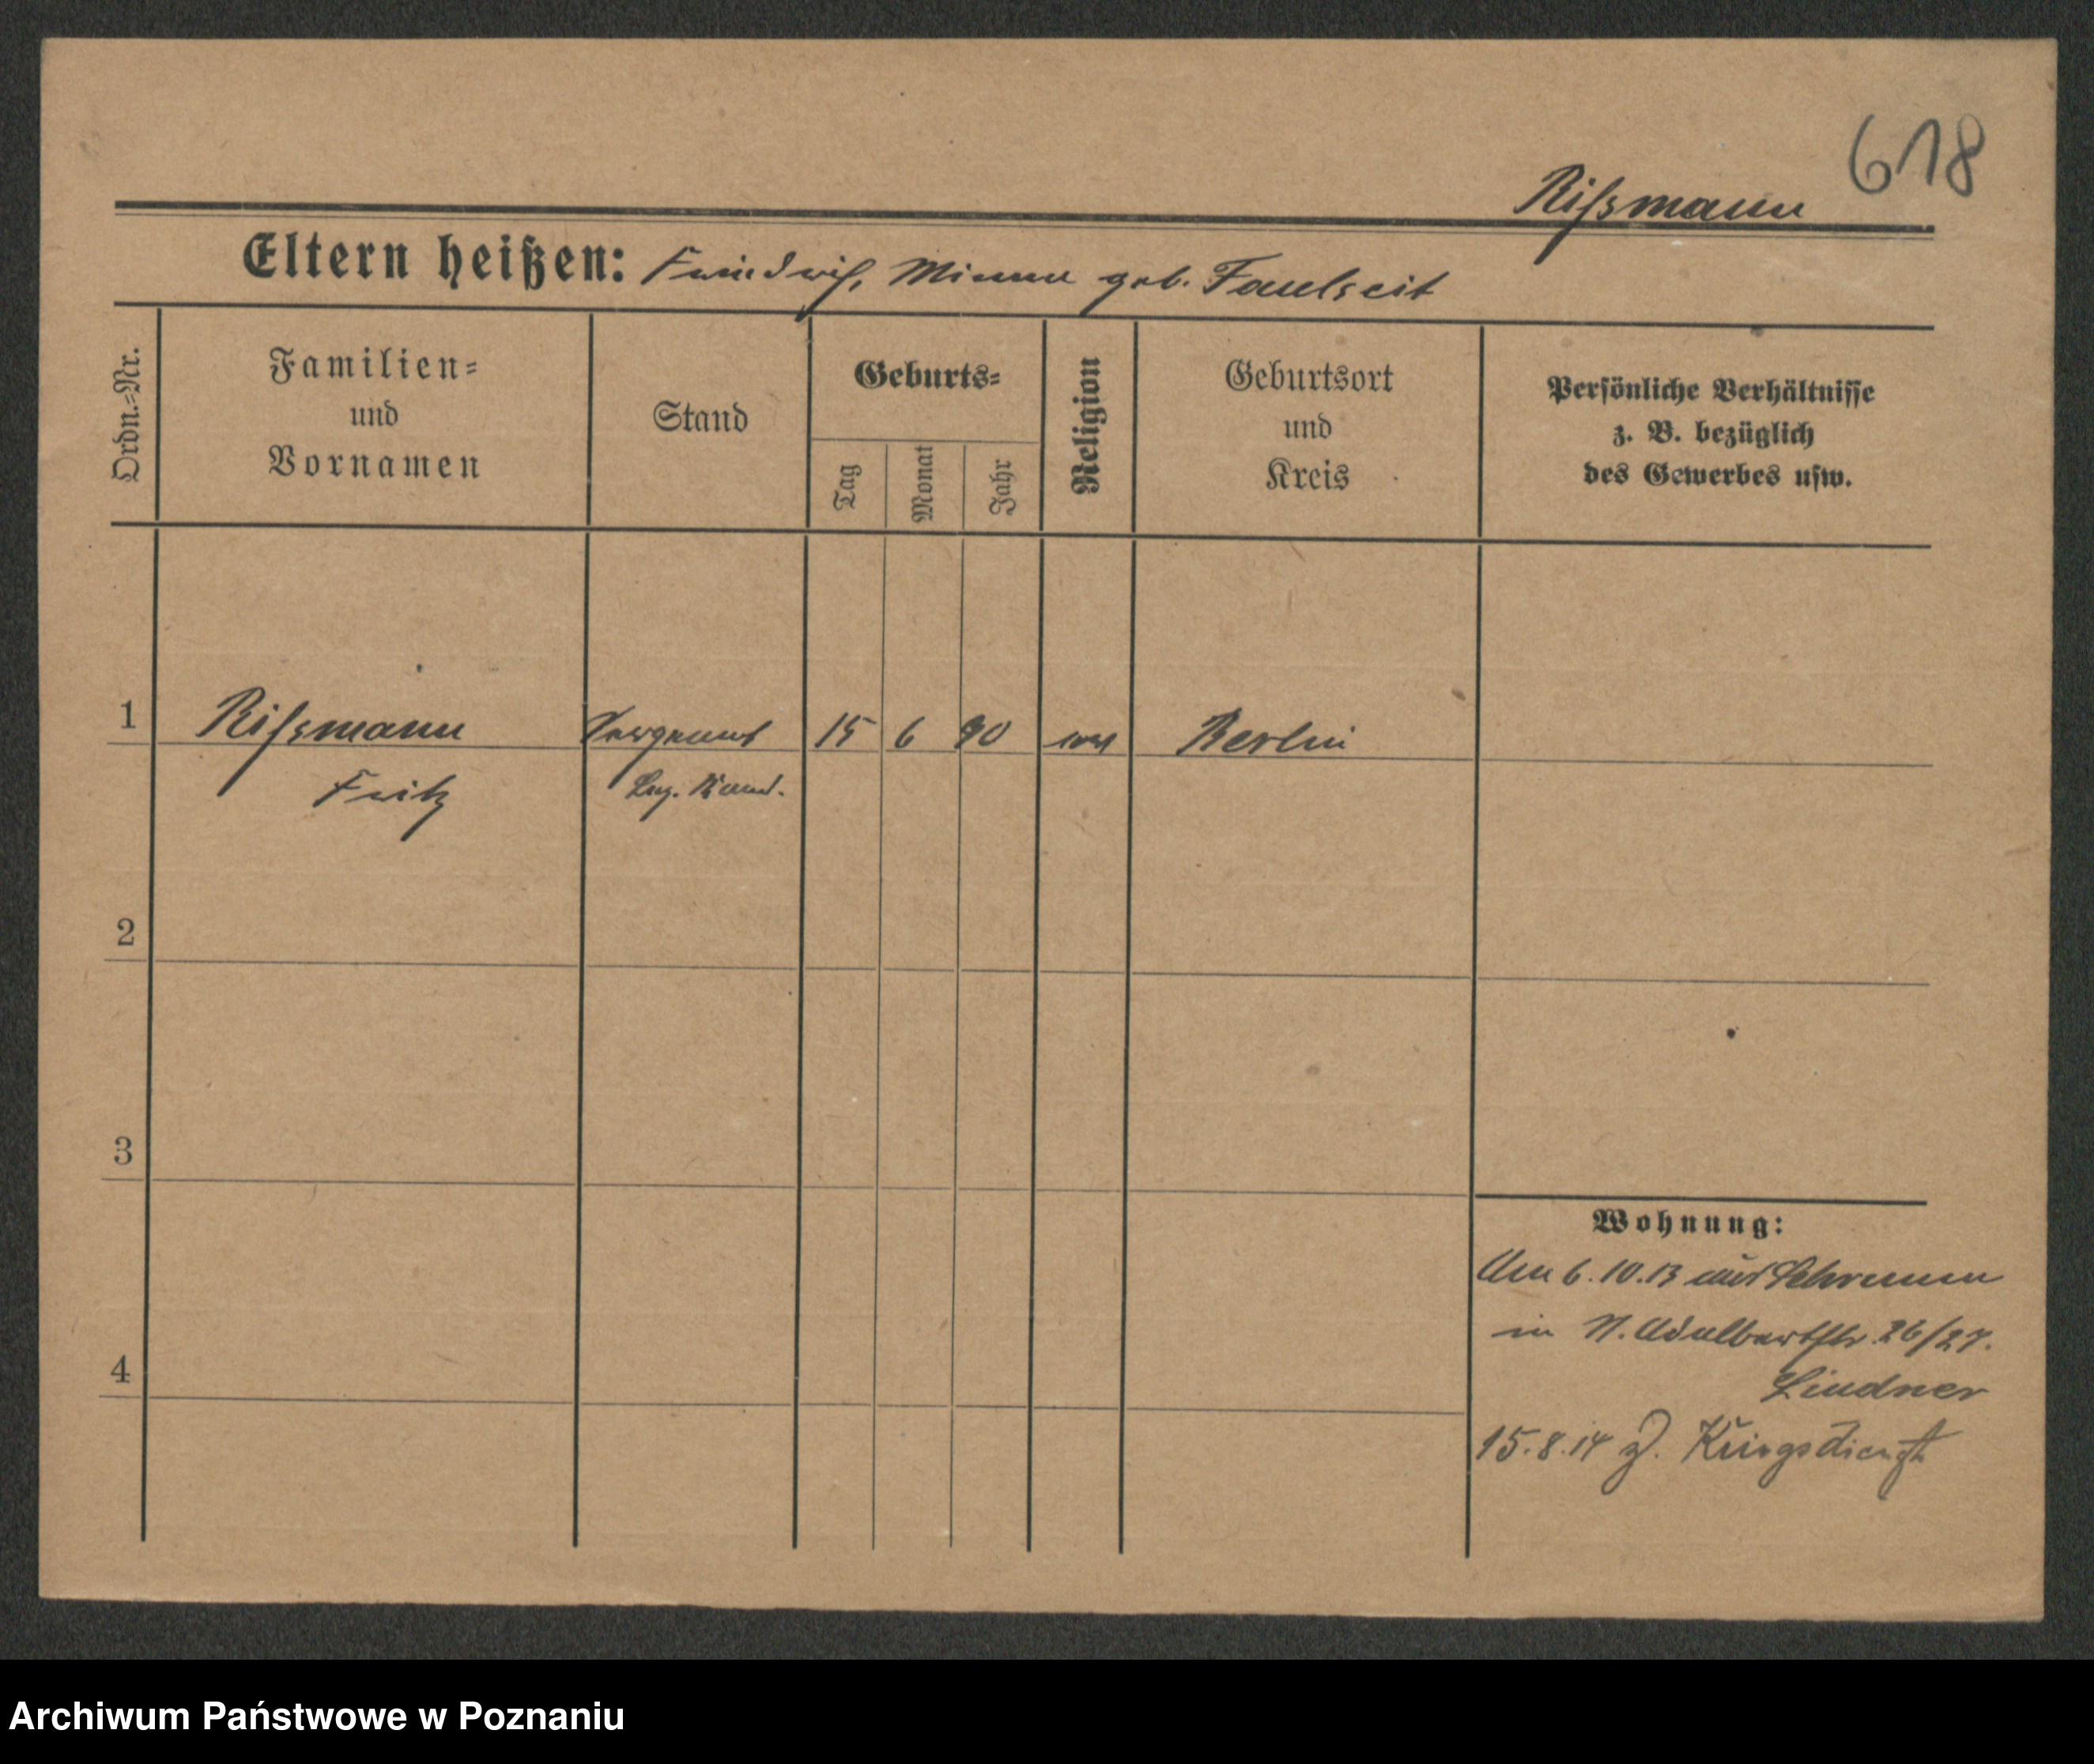 618
Rißmann
Eltern heißen: Friedrich, Minna geb. Faulseit
Ordn.-Nr.
Familien-
und
Vornamen
Stand
Geburts-
Tag
Monat
Jahr
Religion
Geburtsort
und
Kreis
Persönliche Verhältnisse
z. B. bezüglich
des Gewerbes usw.
1
Rißmann
15 6 90
Berlin
Fritz
2
3
4
Wohnung:
Am 6.10.13 aus Schrimm
in N. Adalbertstr. 26/27.
Lindner
15.8.14 z. Kriegsdienst
Archiwum Państwowe w Poznaniu